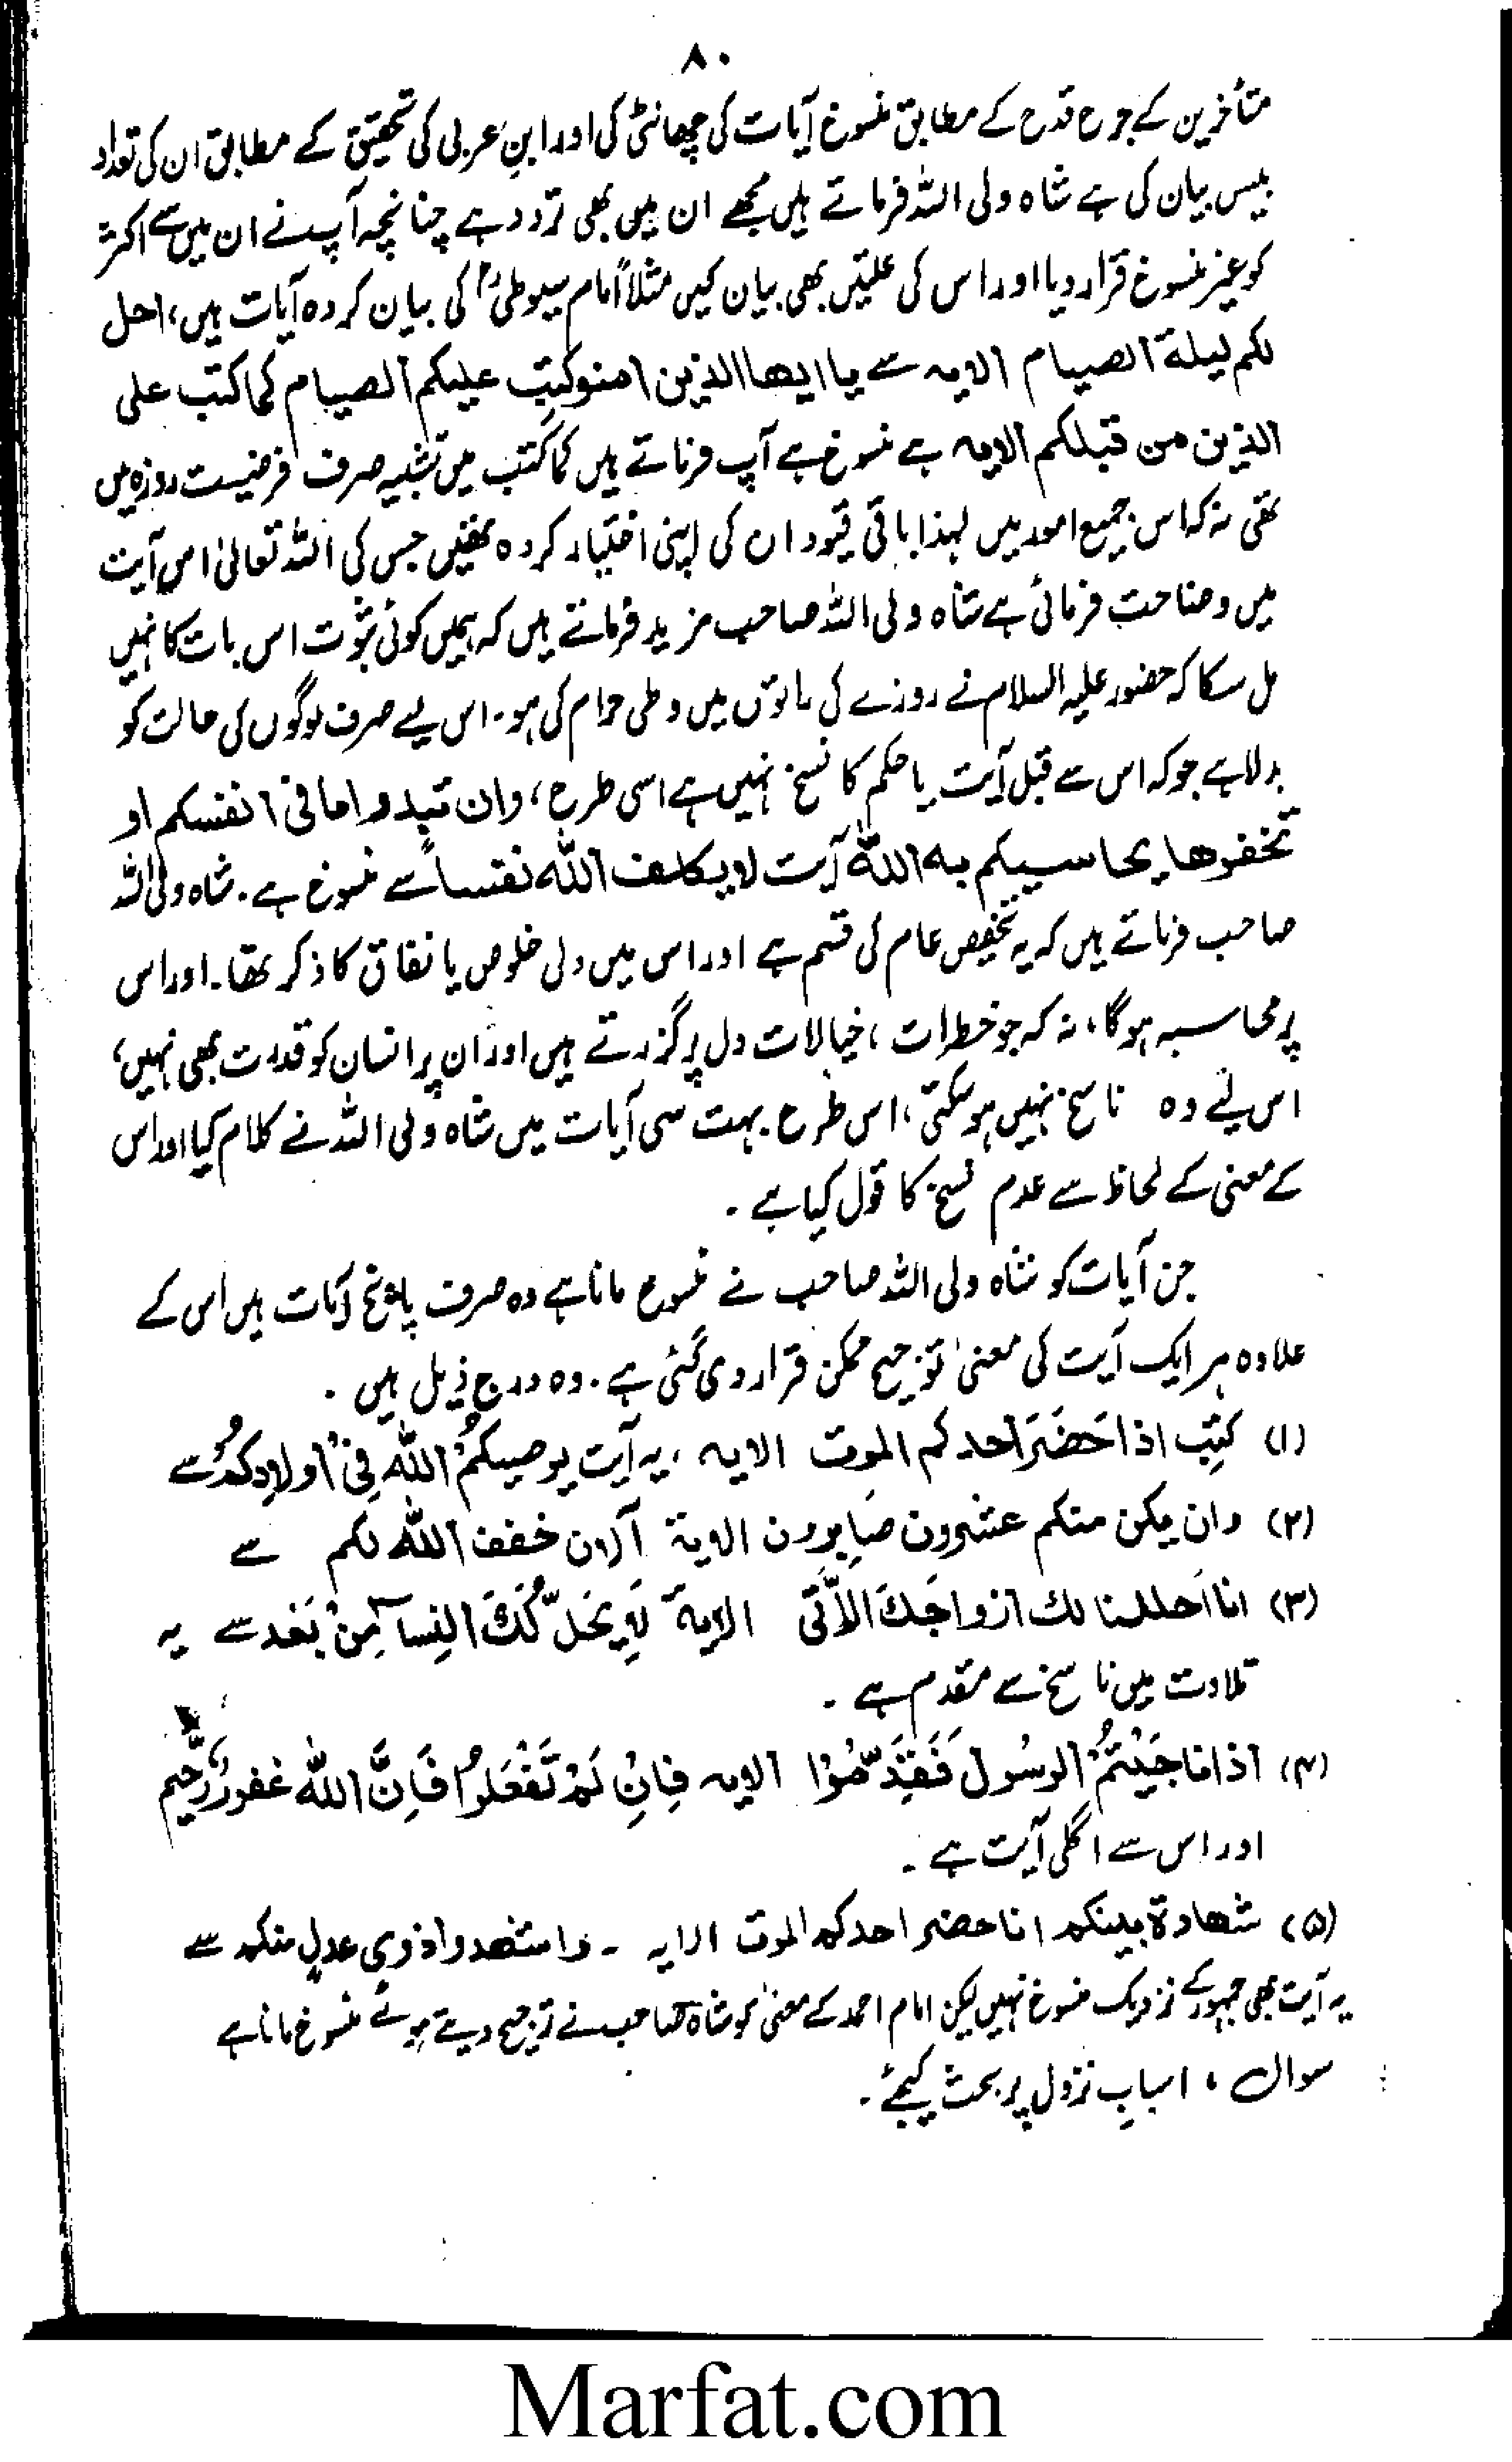 ۸۰
متأخرین کے جرح قدح کے مطابق منسوخ آیات کی چھانٹی کی اور ابنِ عربی کی تحقیق کے مطابق ان کی تعداد
بیس بیان کی ہے شاہ ولی اللہ فرماتے ہیں مجھے ان میں بھی تردد ہے چنانچہ آپ نے ان میں سے اکثر
کو غیر منسوخ قرار دیا اور اس کی علتیں بھی بیان کیں مثلاً امام سیوطیؒ کی بیان کردہ آیات ہیں، احل
لکم لیلۃ الصیام الایہ سے یا ایھا الذین امنو کتب علیکم الصیام کما کتب علی
الذین من قبلکم الایہ ہے منسوخ ہے آپ فرماتے ہیں کما کتب میں تشبیہ صرف فرضیت روزہ میں
تھی نہ کہ اس جمیع امور میں لہذا باقی قیود ان کی اپنی اختیار کردہ تھیں جس کی اللہ تعالیٰ اس آیت
میں وضاحت فرمائی ہے شاہ ولی اللہ صاحب مزید فرماتے ہیں کہ ہمیں کوئی ثبوت اس بات کا نہیں
مل سکا کہ حضور علیہ السلام نے روزے کی راتوں میں وطی حرام کی ہو۔ اس لیے صرف لوگوں کی حالت کو
بدلا ہے جو کہ اس سے قبل آیت یا حکم کا نسخ نہیں ہے اسی طرح، وان تبدوا ما فی انفسکم او
تخفوھا یحاسبکم بہ اللہ آیت لا یکلف اللہ نفساً سے منسوخ ہے۔ شاہ ولی اللہ
صاحب فرماتے ہیں کہ یہ تخصیص عام کی قسم ہے اور اس میں دلی خلوص یا نفاق کا ذکر تھا۔ اور اس
پر محاسبہ ہوگا، نہ کہ جو خطرات، خیالات دل پر گزرتے ہیں اور ان پر انسان کو قدرت بھی نہیں،
اس لیے وہ ناسخ نہیں ہو سکتی، اس طرح بہت سی آیات میں شاہ ولی اللہ نے کلام کیا اور اس
کے معنی کے لحاظ سے عدم نسخ کا قول کیا ہے۔
جن آیات کو شاہ ولی اللہ صاحب نے منسوخ مانا ہے وہ صرف پانچ آیات ہیں اس کے
علاوہ ہر ایک آیت کی معنیٰ توجیح ممکن قرار دی گئی ہے۔ وہ درج ذیل ہیں۔
(۱) کُتِب اذا حَضَرَ احدکم الموت الایہ، یہ آیت یوصیکُمُ اللہُ فِیْ اولادِکُمْ سے
(۲) وان یکن منکم عشرون صَابِرون الایۃ آلان خفف اللہ لکم سے
(۳) انا احللنا لک ازواجَکَ الاّتی الایۃ لَا یَحَلّ لَکَ النِسآ مِنْ بَعْد سے یہ
تلاوت میں ناسخ سے مقدم ہے۔
(۴) اذا نا جَیْتُمُ الرسُولَ فَقَدِّمُوْا الایہ فِانِ لَمْ تَفْعَلُوا فَاِنَّ اللہ غفورٌ رَّحیم
اور اس سے اگلی آیت ہے۔
(۵) شھادۃ بینکم اذا حضر احدکم الموت الایہ ۔ واستشھدوا ذوی عدلٍ منکم سے
یہ آیت بھی جمہور کے نزدیک منسوخ نہیں لیکن امام احمد کے معنیٰ کو شاہ صاحب نے ترجیح دیتے ہوئے منسوخ مانا ہے
سوال، اسبابِ نزول پر بحث کیجئے۔
Marfat.com